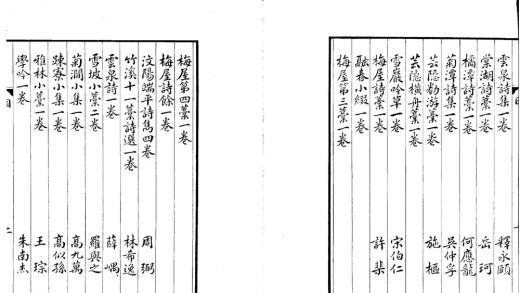 雲泉詩集一卷 釋永頤
棠湖詩稾一卷 岳珂
橘潭詩稾一卷 何應龍
菊潭詩集一卷 吳仲孚
芸隱勌游稾一卷 施樞
芸隱橫舟稾一卷
雪巖吟草一卷 宋伯仁
梅屋詩稾一卷 許棐
融春小綴一卷
梅屋第三稾一卷
梅屋第四稾一卷
梅屋詩餘一卷
汶陽端平詩雋四卷 周弼
竹溪十一稾詩選一卷 林希逸
雲泉詩一卷 薛嵎
雪坡小稾二卷 羅與之
菊澗小集一卷 高九萬
疎寮小集一卷 高似孫
雅林小稾一卷 王琮
學吟一卷 朱南杰
目